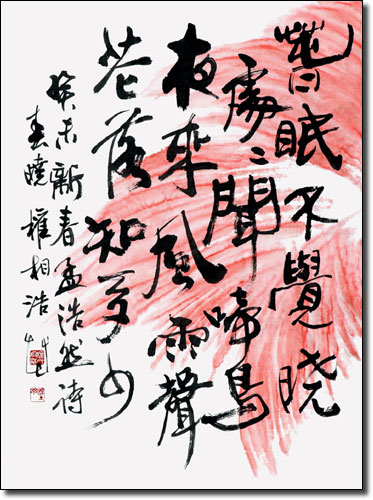 春眠不覺晓
處〻聞啼鳥
夜來風雨聲
花落知多少
癸未新春孟浩然詩
春曉 權相浩